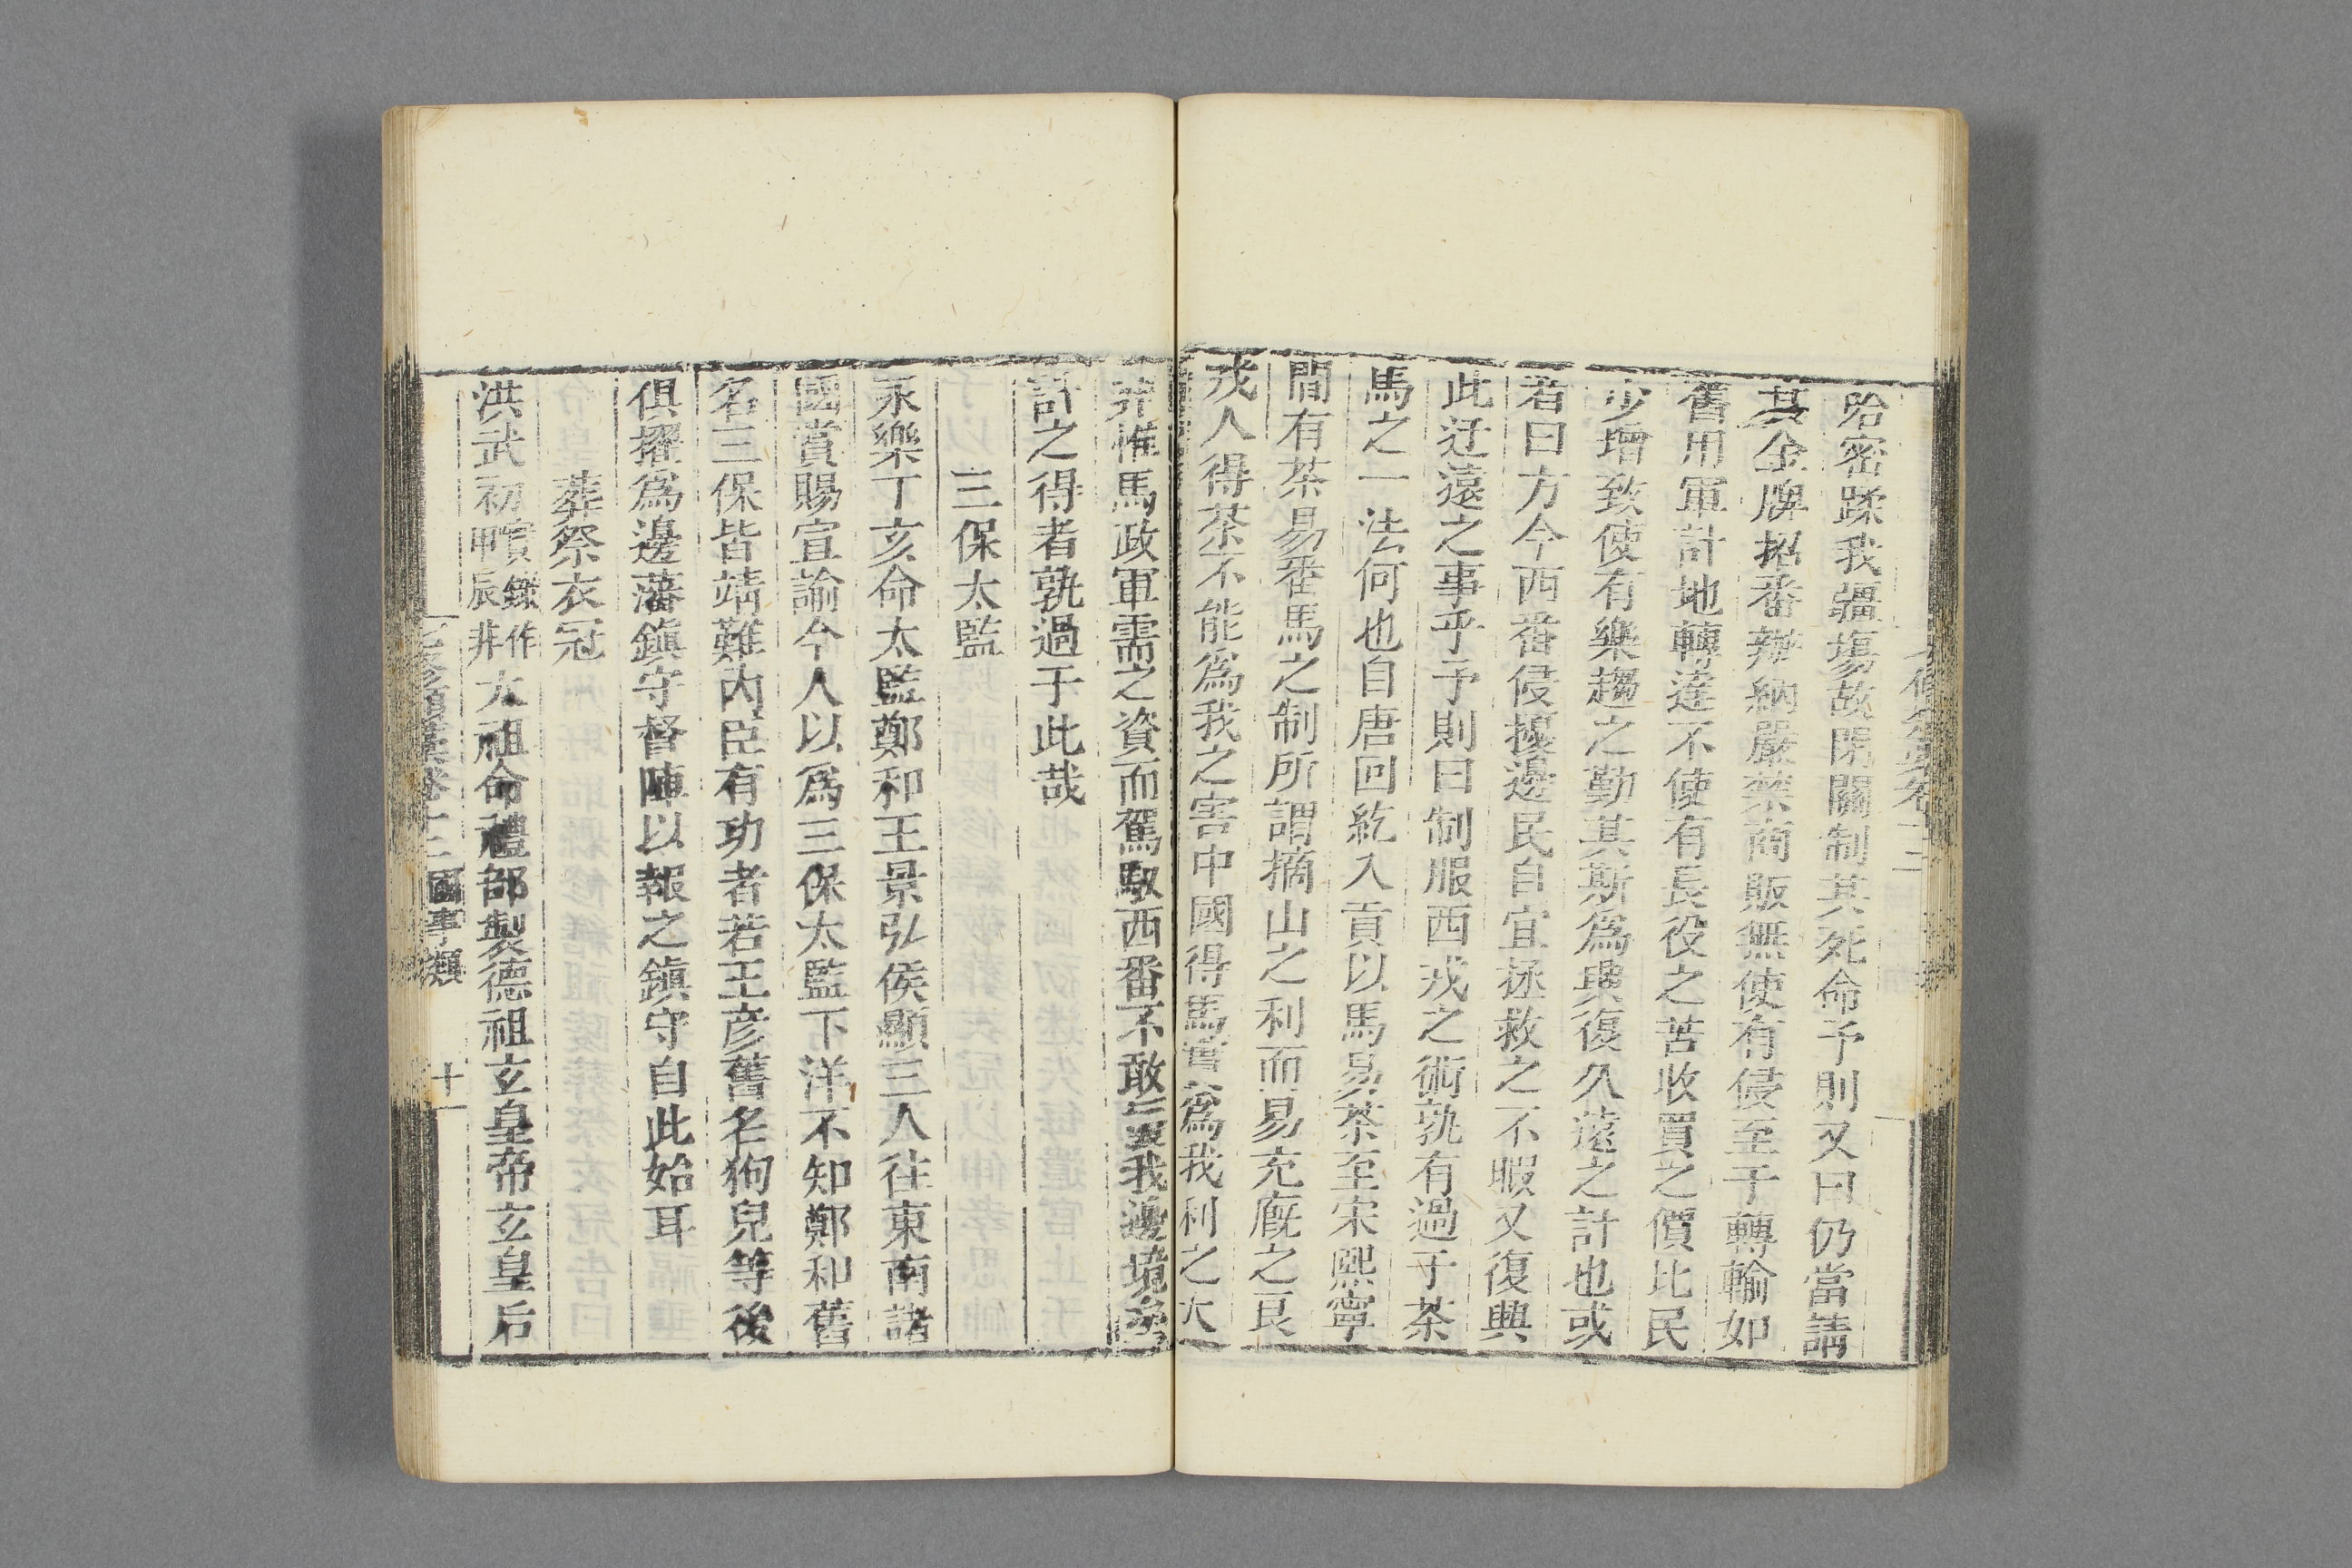 哈密蹂我疆塲故閉關制其死命予則又曰仍當請
其金牌招番辦納嚴禁商販無使有侵至于轉輸如
舊用軍計地轉達不使有長役之苦收買之價比民
少增致使有樂趨之勤其斯爲興復久遠之計也或
者曰方今西番侵擾邊民自宜拯救之不暇又復興
此迂遠之事乎予則曰制服西戎之術孰有過于茶
馬之一法何也自唐回紇入貢以馬易茶至宋熙寧
間有茶易番馬之制所謂摘山之利而易充廐之良
戎人得茶不能爲我之害中國得馬實爲我利之大
非惟馬政軍需之資而駕馭西番不敢擾我邊境
計之得者孰過于此哉
三保太監
永樂丁亥命太監鄭和王景弘侯顯三人往東南諸
國賞賜宣諭今人以爲三保太監下洋不知鄭和舊
名三保皆靖難內臣有功者若王彦舊名狗兒等後
俱擢爲邊藩鎮守督陣以報之鎮守自此始耳
葬祭衣冠
洪武初實錄作甲辰非太祖命禮部製德祖玄皇帝玄皇后
七修類藁卷十二 國事類 十